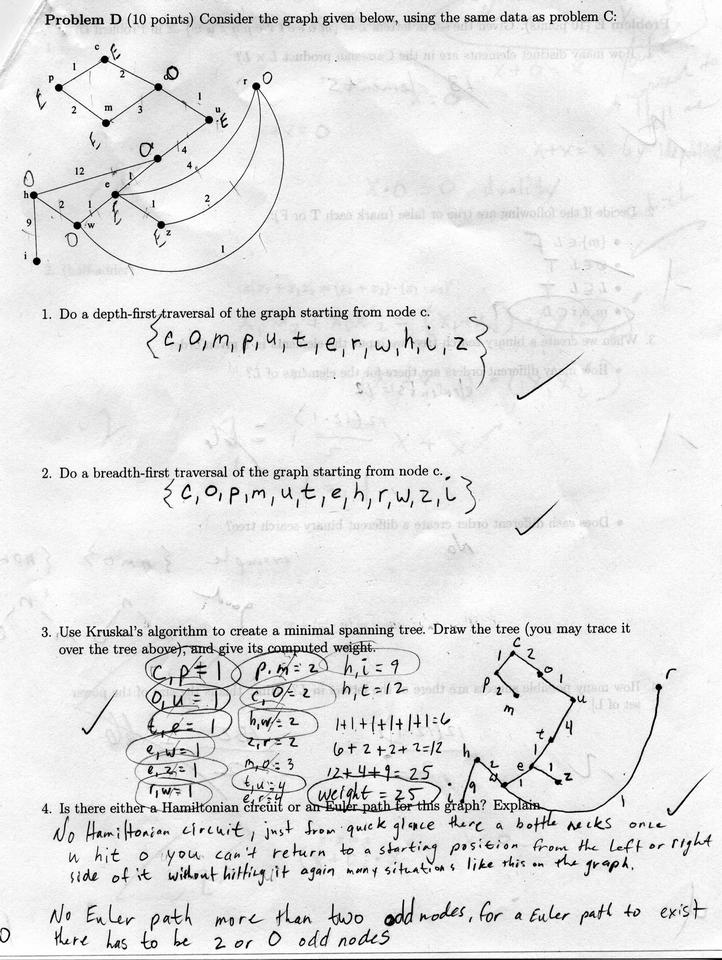 Problem D (10 points) Consider the graph given below, using the same data as problem C:
c E
1 2
p o O
E
2 m 3 1
E
u E
r O
O t 4
4
12
O h
e 1
2 1 1 2
E
9 w z
O E
1
i
1. Do a depth-first traversal of the graph starting from node c.
{c, o, m, p, u, t, e, r, w, h, i, z}
2. Do a breadth-first traversal of the graph starting from node c.
{c, o, p, m, u, t, e, h, r, w, z, i}
3. Use Kruskal's algorithm to create a minimal spanning tree. Draw the tree (you may trace it
over the tree above), and give its computed weight.
c, p = 1 p, m = 2 h, i = 9
o, u = 1 c, o = 2 h, t = 12
t, e = 1 h, w = 2 1+1+1+1+1+1=6
e, w = 1 z, r = 2 6+2+2+2=12
e, z = 1 m, o = 3 12+4+9=25
r, w = 1 t, u = 4 weight = 25
e, r = 4
c
1 2
p o 1
2 m u
4
t
1
h 2 e 1
w 1 z
i 9
r
1
4. Is there either a Hamiltonian circuit or an Euler path for this graph? Explain.
No Hamiltonian circuit, just from quick glance there a bottle necks once
u hit o you can't return to a starting position from the left or right
side of it without hitting it again many situations like this on the graph.
No Euler path more than two odd nodes, for a Euler path to exist
there has to be 2 or 0 odd nodes